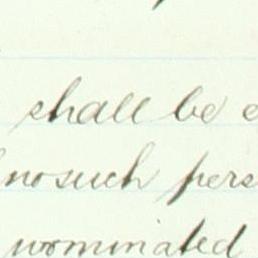 shall be
no such pers
nominated